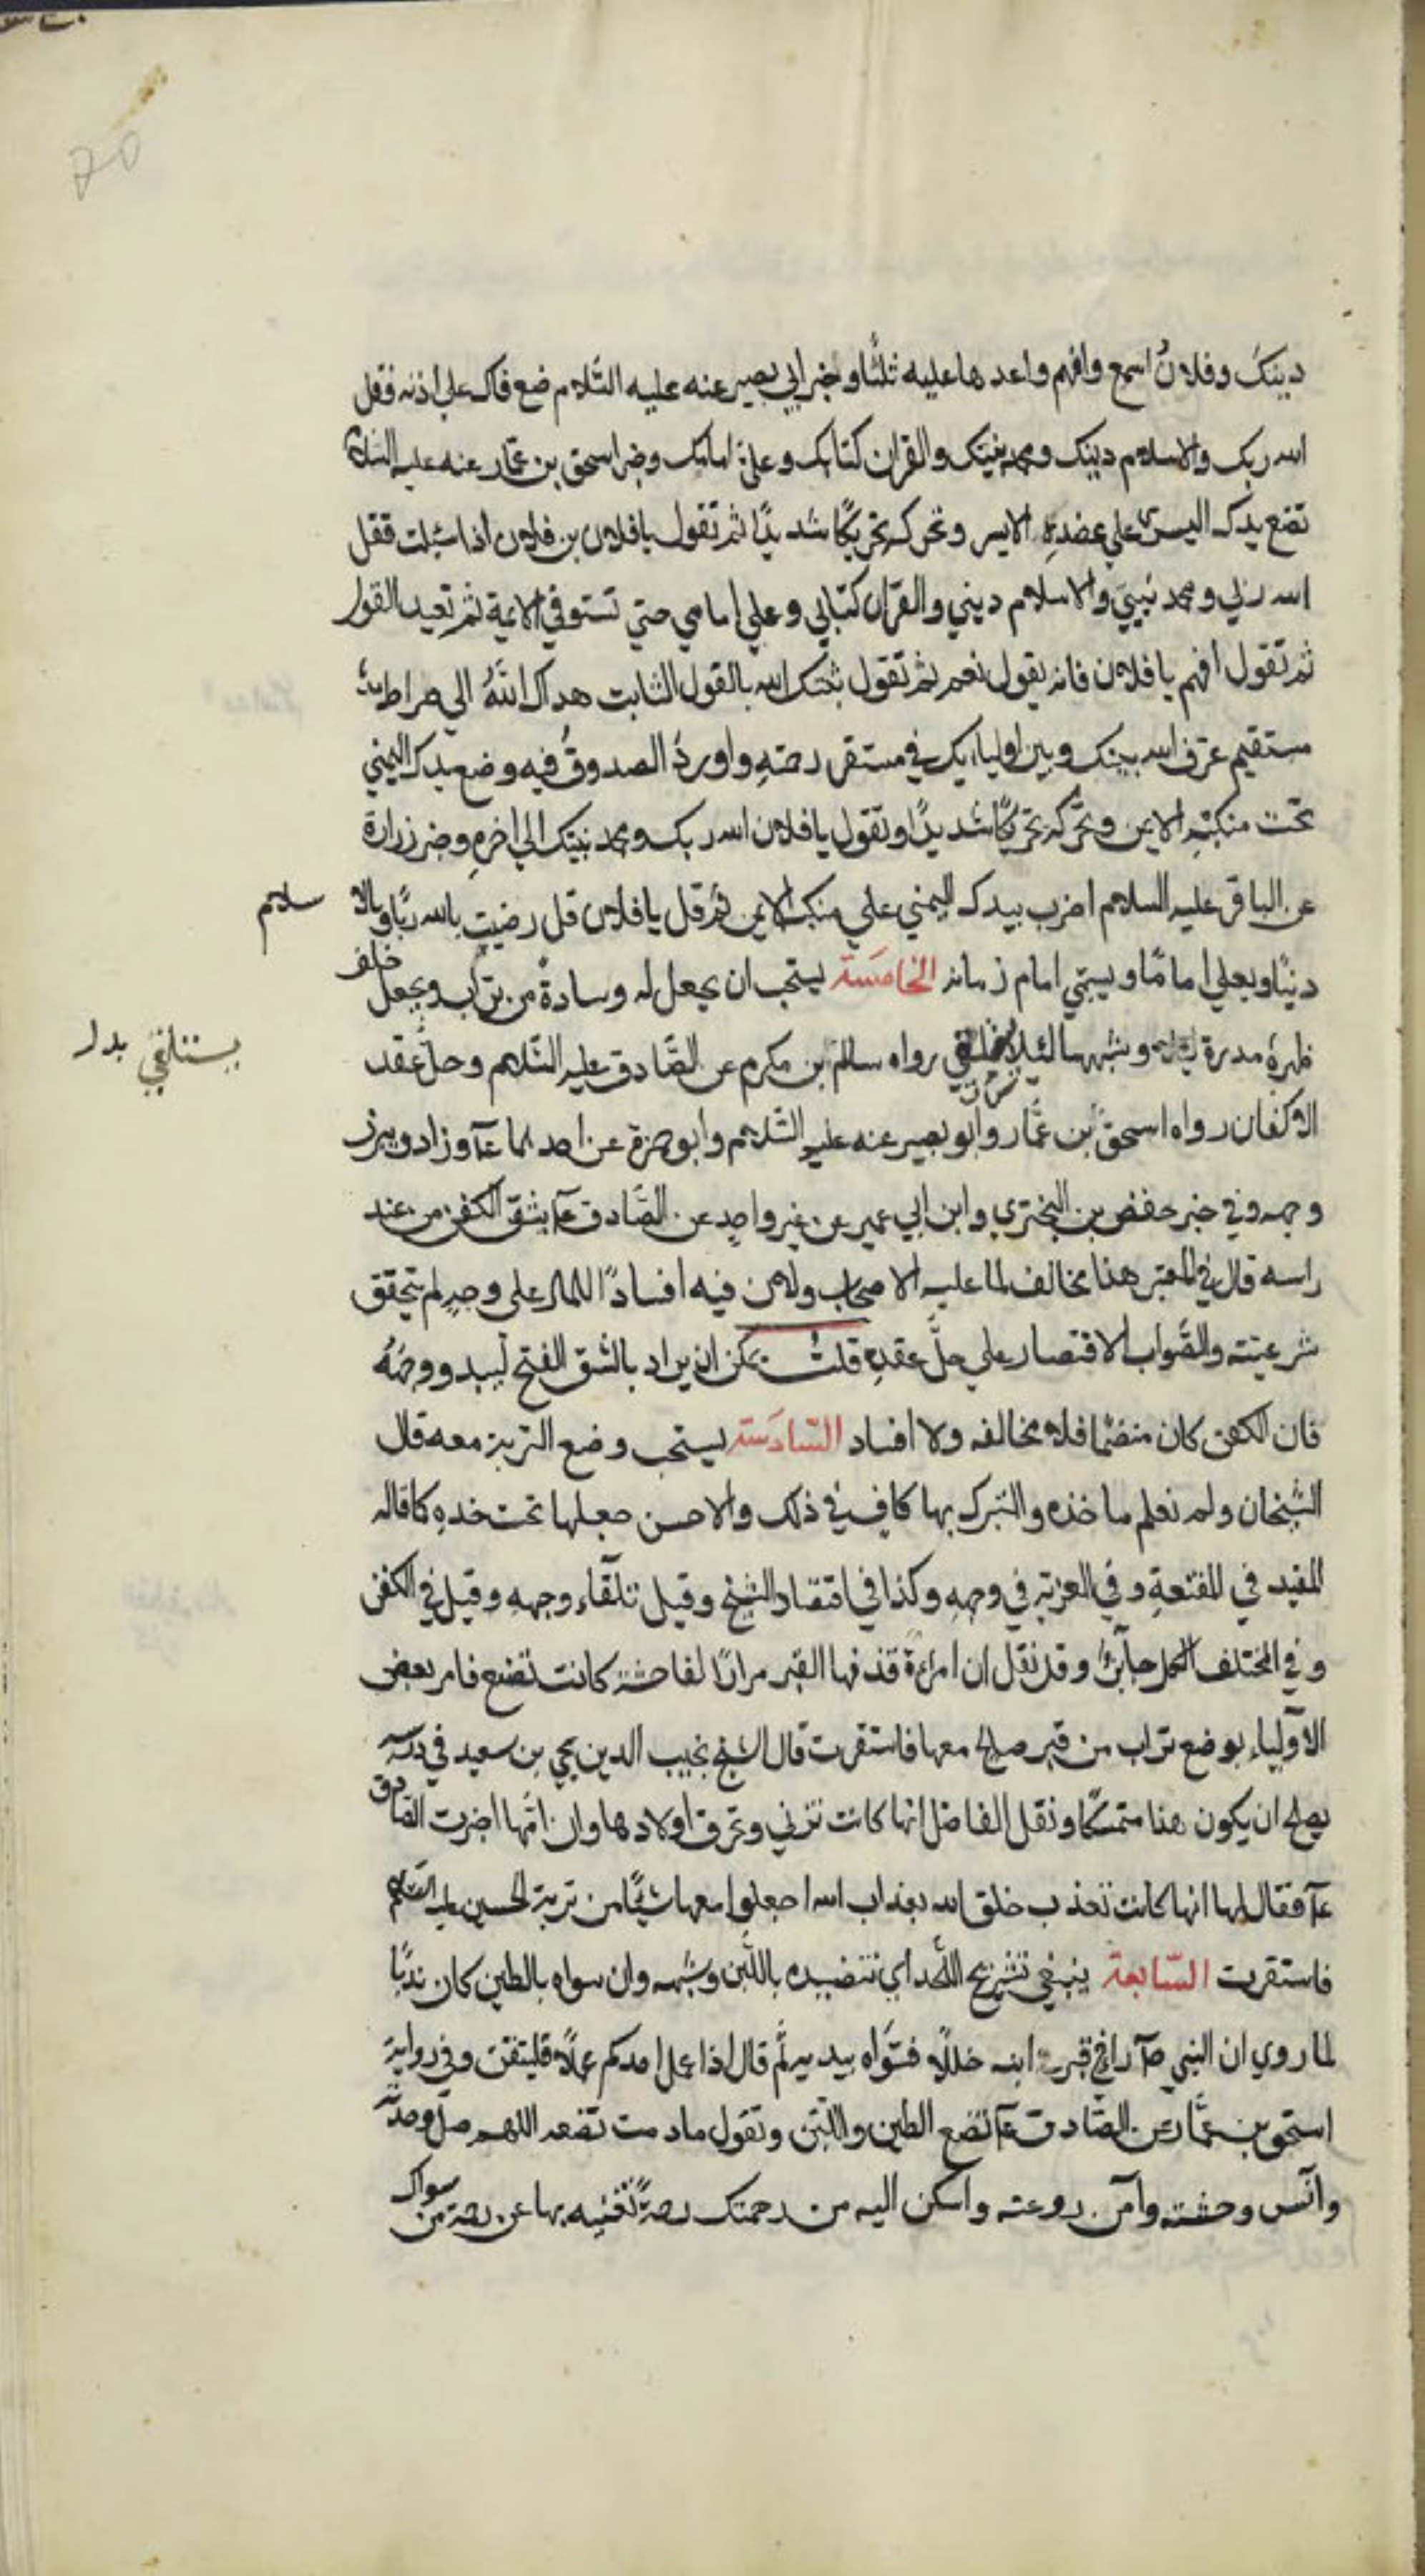 دينك وفلان اسمع وافهم واعدها عليه ثلثا وخبر ابي بصير عنه عليه السلام ضع فاك علي اذنه فقل
الله ربك والاسلام دينك ومحمد نبيك والقران كتابك وعلي امامك وخبر اسحق بن عمار عنه عليه السلام
تضع يدك اليسرى علي عضده الايسر وتحركه تحريكًا شديدًا ثم تقول يا فلان بن فلان اذا سئلت فقل
الله ربي ومحمد نبيي والاسلام ديني والقران كتابي وعلي امامي حتي تستوفي الايمة ثم تعيد القول
ثم تقول افهم يا فلان فانه يقول نعم ثم تقول ثبتك الله بالقول الثابت هداك اللهُ الي صراط
مستقيم عرف الله بينك وبين اوليايك في مستقر رحمتهِ واوردهُ الصدوق فيه وضع يدك اليمني
تحت منكبهِ الايمن وتحركه تحريكًا شديدًا وتقول يا فلان الله ربك ومحمد نبيك الي اخرهِ وخبر زرارة
عن الباقر عليه السلام اضرب بيدك اليمني علي منكبه الايمن ثم قل يا فلان قل رضيت بالله ربًا وبالا سلام
دينًا وبعلي امامًا ويسمي امام زمانه الخامَسة يستحب ان يجعل له وسادةٌ من تراب ويجعل خلف
ظهرهُ مدرة وشبهها لئلا يستلقي رواه سالم بن مكرم عن الصّادق عليه السّلام وحل عقد
يستلقي بدل
الاكفان رواه اسحق بن عمّار وابو بصير عنه عليه السّلام وابو حمزة عن احدهما عآ وزاد ويبرز
وجهه وفي خبر حفض بن البختري وابن ابي عمير عن غير واحدٍ عن الصّادق عآ يشق الكفن من عند
راسه قال في المعتبر هذا مخالف لما عليه الاصحاب ولان فيه افسادًا للمال علي وجهٍ لم يتحقق
شرعيته والصّواب الاقتصار علي حلّ عقدهِ قلتُ يمكن ان يراد بالشق الفتح ليبدو وجههُ
فان الكفن كان منضمًا فلا مخالفه ولا افساد السّادَسَة يستحب وضع التربة معه قال
الشيخان ولم نعلم ماخذه والتبرك بها كافٍ في ذلك والاحسن جعلها تحت خدهِ كما قاله
المفيد في المقنعةِ وفي العزية في وجههِ وكذا في اقتصاد الشيخ وقيل تلقآء وجههِ وقيل في الكفن
وفي المختلف الكل جآيز وقد نقل ان امراةً قذفها القبر مرارًا لفاحشة كانت تصنع فامر بعض
الاولياء بوضع تراب من قبر صالح معها فاستقرت قال الشيخ نجيب الدين يحيي بن سعيد في درسه
يصلح ان يكون هذا متمسكًا ونقل الفاضل انها كانت تزني وتحرق اولادها وان امّها اخبرت الصّادق
عآ فقال لها انها كانت تعذب خلق الله بعذاب الله اجعلوا معها شيئًا من تربة الحسين عليه السّلام
فاستقرت السّابعة ينبغي تشريج اللحد اي تنضيده باللّبن وشبهه وان سواه بالطين كان ندبًا
لما روي ان النبي صآ راي في قبر ابنه خللًا فسّواه بيده ثم قال اذا عمل احدكم عملًا فليتقن وفي رواية
اسحق بن عمّار عن الصّادق عآ تضع الطين واللّبن وتقول ما دمت تضعه اللهم صل وحدته
وآنس وحشته وآمن روعته واسكن اليه من رحمتك رحمةً تغنيه بها عن رحمة من سواك